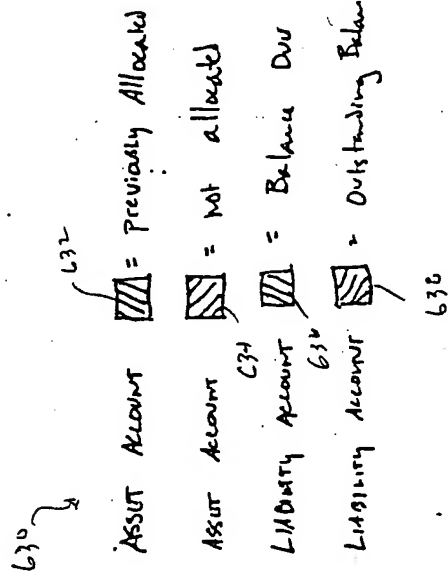 630
632
ASSET ACCOUNT = Previously Allocated
ASSET ACCOUNT = not allocated
634
LIABILITY ACCOUNT = Balance Due
636
LIABILITY ACCOUNT = Outstanding Balan
638